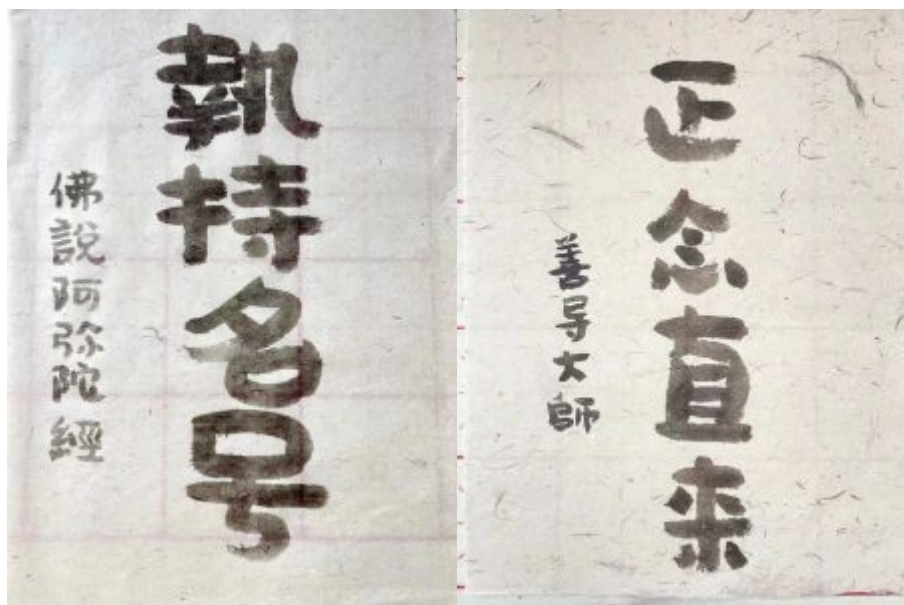 執持名号
佛說阿弥陀經
正念直来
善导大師